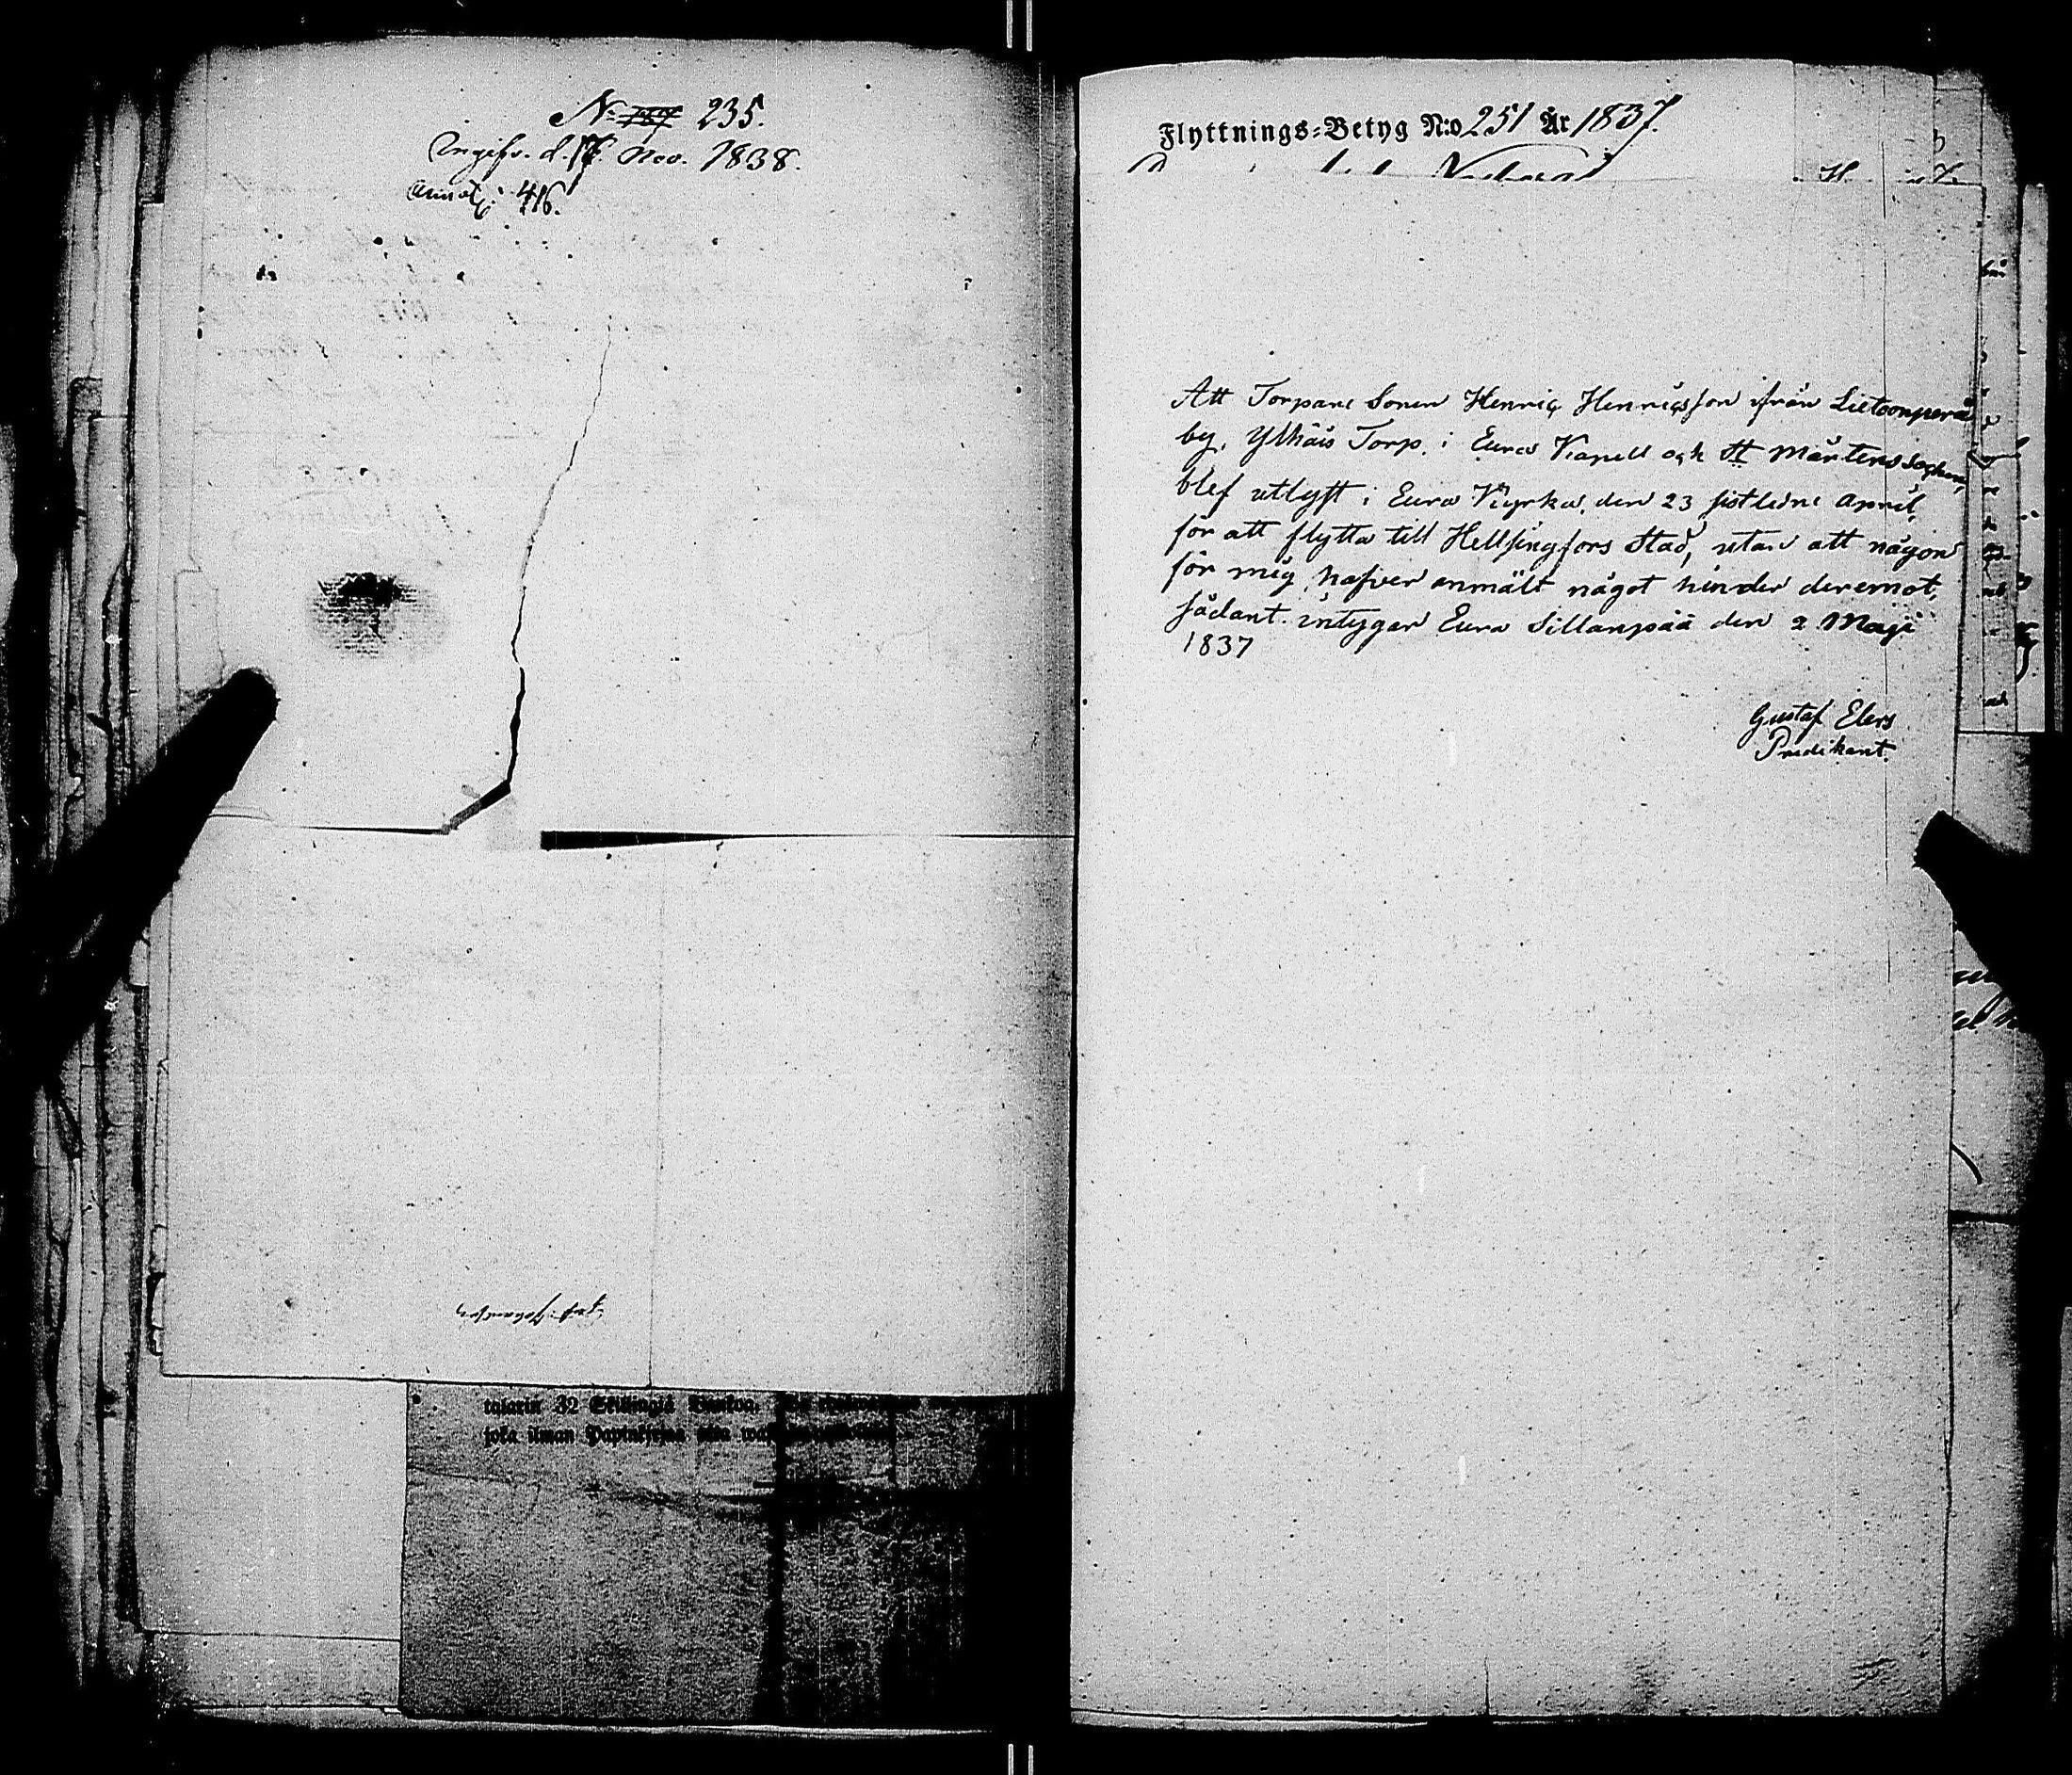 N:o 235.
Ingifv. d. 17. Nov. 1838.
Annot: 416.
talarin 32 Skillingiä Bankoa.
joka ilman Papinkirjaa
Flyttnings-Betyg N:o 251 År 1837.
Att Torpare Sonen Henric Henricsson ifrån Lietoonperä
by, Ylhäis Torp, i Eura Kapell och St Mårtens Sochen,
blef utlyst i Eura Kyrka, den 23 sistledne April,
för att flytta till Hellsingfors Stad, utan att någon
för mig hafver anmält något hinder deremot,
sådant intygar Eura Sillanpää den 2 Maji
1837
Gustaf Elers
Predikant.